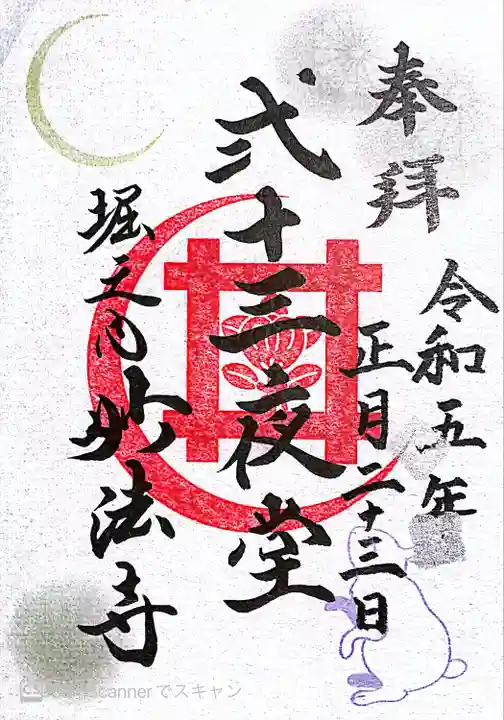 奉拝
令和五年
正月二十三日
弐十三夜堂
堀之内妙法寺
cannerでスキャン